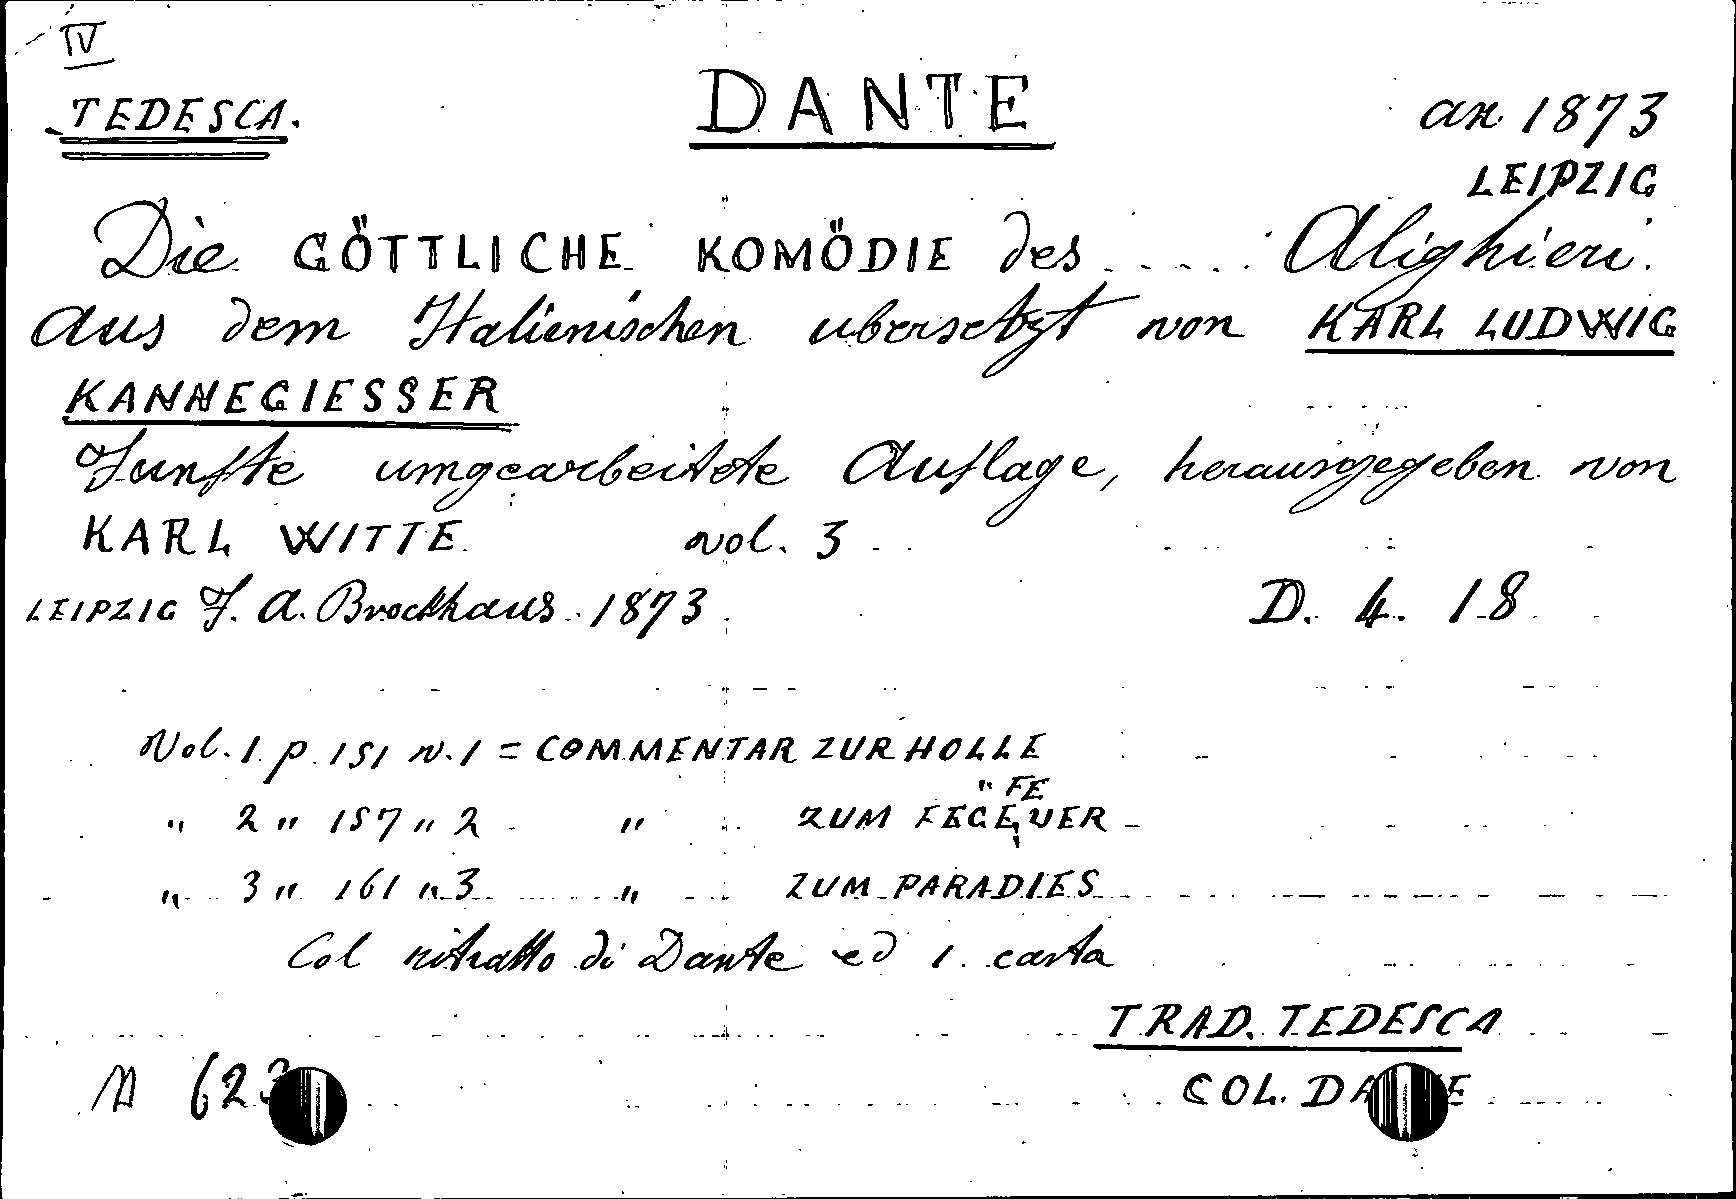 IV
TEDESCA.
DANTE
an 1873
LEIPZIG
Die GÖTTLICHE KOMÖDIE des ..... Alighieri.
Aus dem Italienischen ubersetzt von KARL LUDWIG
KANNEGIESSER
Funfte umgearbeitete Auflage, herausgegeben von
KARL WITTE vol. 3
LEIPZIG F. A. Brockhaus 1873
D. 4. 18
Vol. 1 p. 151 n. 1 = COMMENTAR ZUR HOLLE
" FE
" 2 " 157 " 2 " ZUM FEGEUER
" 3 " 161 " 3 " ZUM PARADIES
Col ritratto di Dante ed 1. carta
TRAD. TEDESCA
623
COL. DANTE